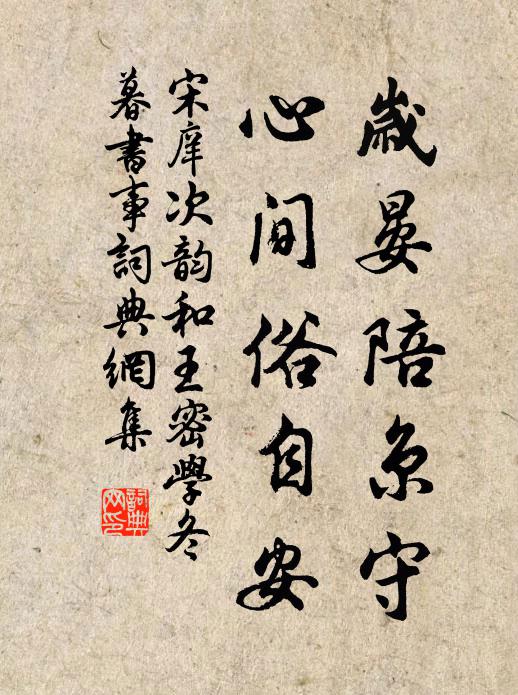 歲晏陪京守
心間俗自安
宋庠次韵和王密學冬
暮書事詞典網集
詞典
网印